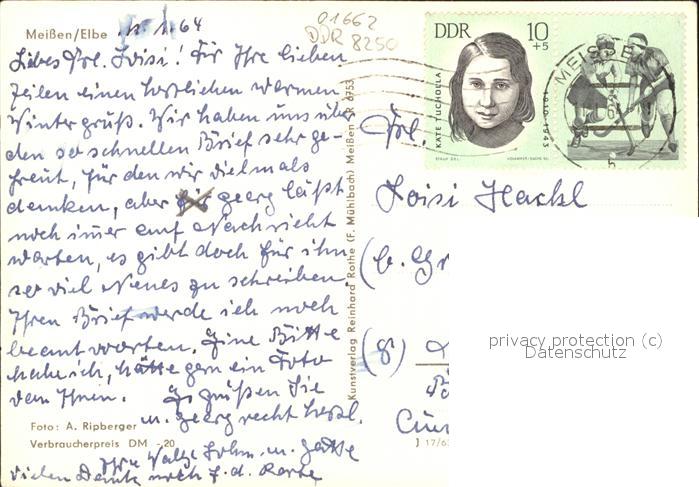 01662
DDR
8250
Meißen/Elbe 1.64
Liebes Frl. Loisi! Für Ihre lieben
Zeilen einen herzlichen warmen
Wintergrüß. Wir haben uns über
den so schnellen Brief sehr ge-
freut, für den wir vielmals
danken, aber georg läßt
noch immer auf Nachricht
warten, es gibt doch für ihn
so viel Neues zu schreiben
Ihren Brief werde ich noch
beantworten. Eine Bitte
habe ich, hätte gern ein Foto
von Ihnen. Es grüßen Sie
u. georg recht herzl.
Foto: A. Ripberger
Verbraucherpreis DM -.20
vielen Dank noch f. d. Karte
Kunstverlag Reinhard Rothe (F. Mühlbach) Meißen
DDR 10
+5
KÄTE TUCHOLLA
1910-1943
MEISSEN
Frl.
Loisi Hackl
(b. Gr
privacy protection (c)
Datenschutz
J 17/63